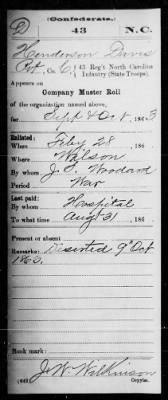 (Confederate.)
D 43 N.C.
Henderson Davis
Pvt, Co. C, 43 Reg't North Carolina
Infantry (State Troops).
Appears on
Company Muster Roll
of the organization named above,
for Sept & Oct, 1863
Enlisted:
When Feby 28, 186
Where Wilson
By whom J. S. Woodard
Period War
Last paid:
By whom Hospital
To what time Aug 31, 186
Present or absent
Remarks: Deserted 9" Oct
1863.
Book mark:
J. W. Wilkinson
(642) Copyist.